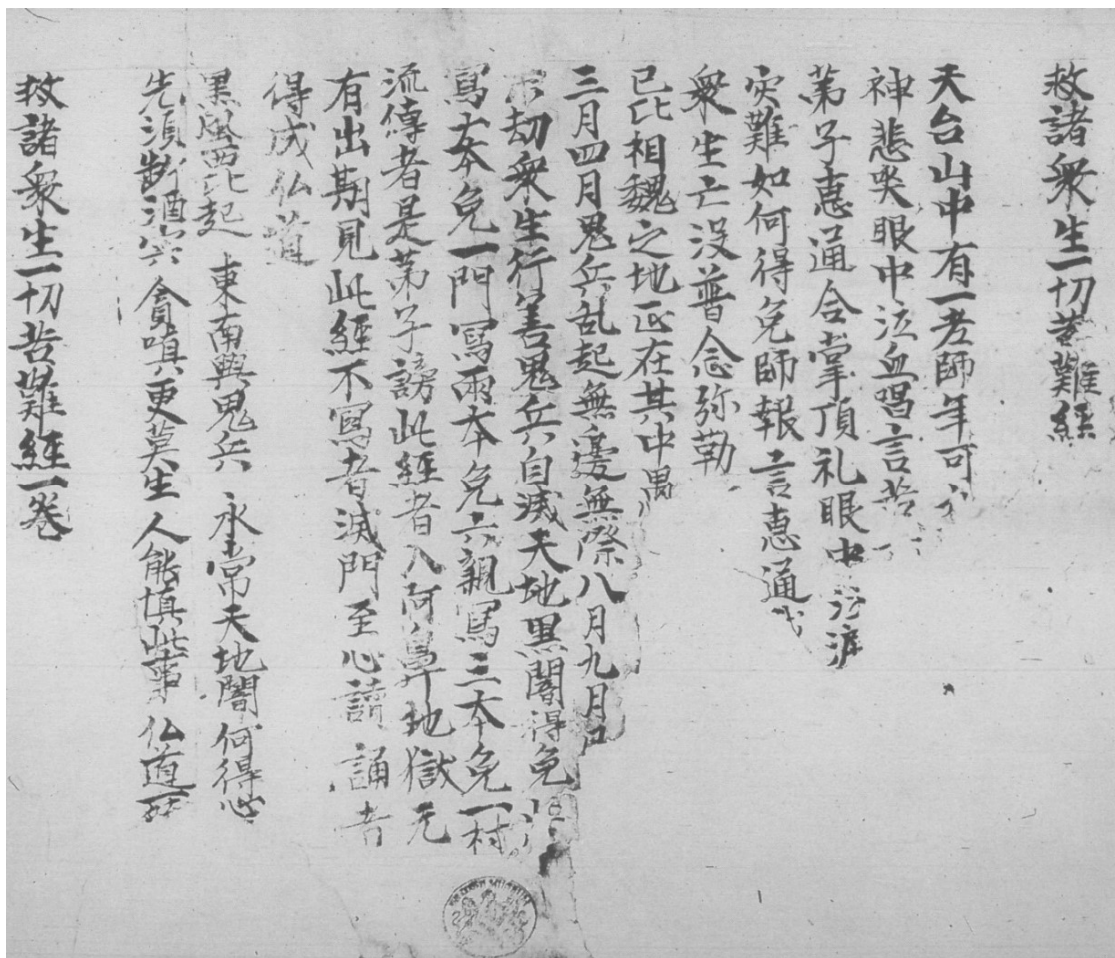 救諸衆生一切苦難経
天台山中有一老師年可
神悲哭眼中泣血唱言苦
弟子惠通合掌頂礼眼中泣淚
災難如何得免師報言惠通
衆生亡没普念弥勒
已北相魏之地正在其中愚
三月四月鬼兵乱起無邊無際八月九月
劫衆生行善鬼兵自滅天地黒闇得免
寫一本免一門寫兩本免六親寫三本免一村
流傳者是弟子謗此經者入阿鼻地獄无
有出期見此經不寫者滅門至心讀誦者
得成仏道
黒風西北起 東南興鬼兵 永常天地闇 何得心
先須斷酒宍 貪嗔更莫生 人能慎此事 仏道
救諸衆生一切苦難經一卷